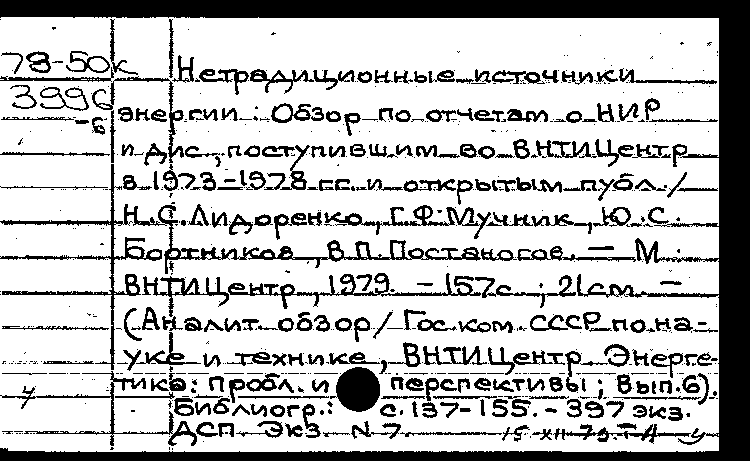 78-50к Нетрадиционные источники
3996 энергии: Обзор по отчетам о НИР
-б
и дис., поступившим во ВНТИЦентр
в 1973-1978 гг. и открытым публ./
Н.С. Лидоренко, Г.Ф. Мучник, Ю.С.
Бортников, В.П. Постаногов. — М.:
ВНТИЦентр, 1979. - 157с.; 21см. —
(Аналит. обзор/ Гос.ком. СССР по на-
уке и технике, ВНТИЦентр. Энерге-
тика: пробл. и перспективы; Вып.6).
Библиогр.: с. 137-155. - 397 экз.
ДСП. Экз. N 7.